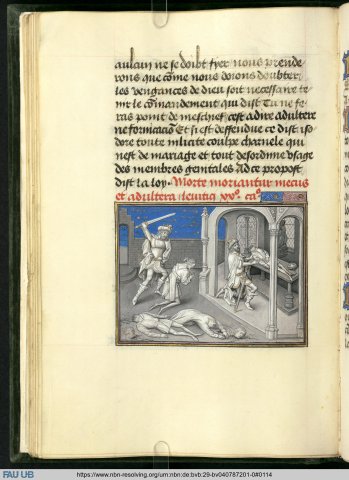 aulcun ne se doibt fyer nous prende
rons que cõme nous deuons doubter
les vengances de dieu soit necessaire te
nir le cõmandement qui dist Tu ne fe
ras point de meschief cest adire adultere
ne fornicaciõ Et si est deffendue ce dist iso
dore toute illicite coulpe charnele qui
nest de mariage et tout desordine vsage
des membres genitales Ad ce propost
dist la loy. Morte moriantur mecus
et adultera leuitici xxº. caº.
FAU UB https://www.nbn-resolving.org/urn:nbn:de:bvb:29-bv040787201-0#0114